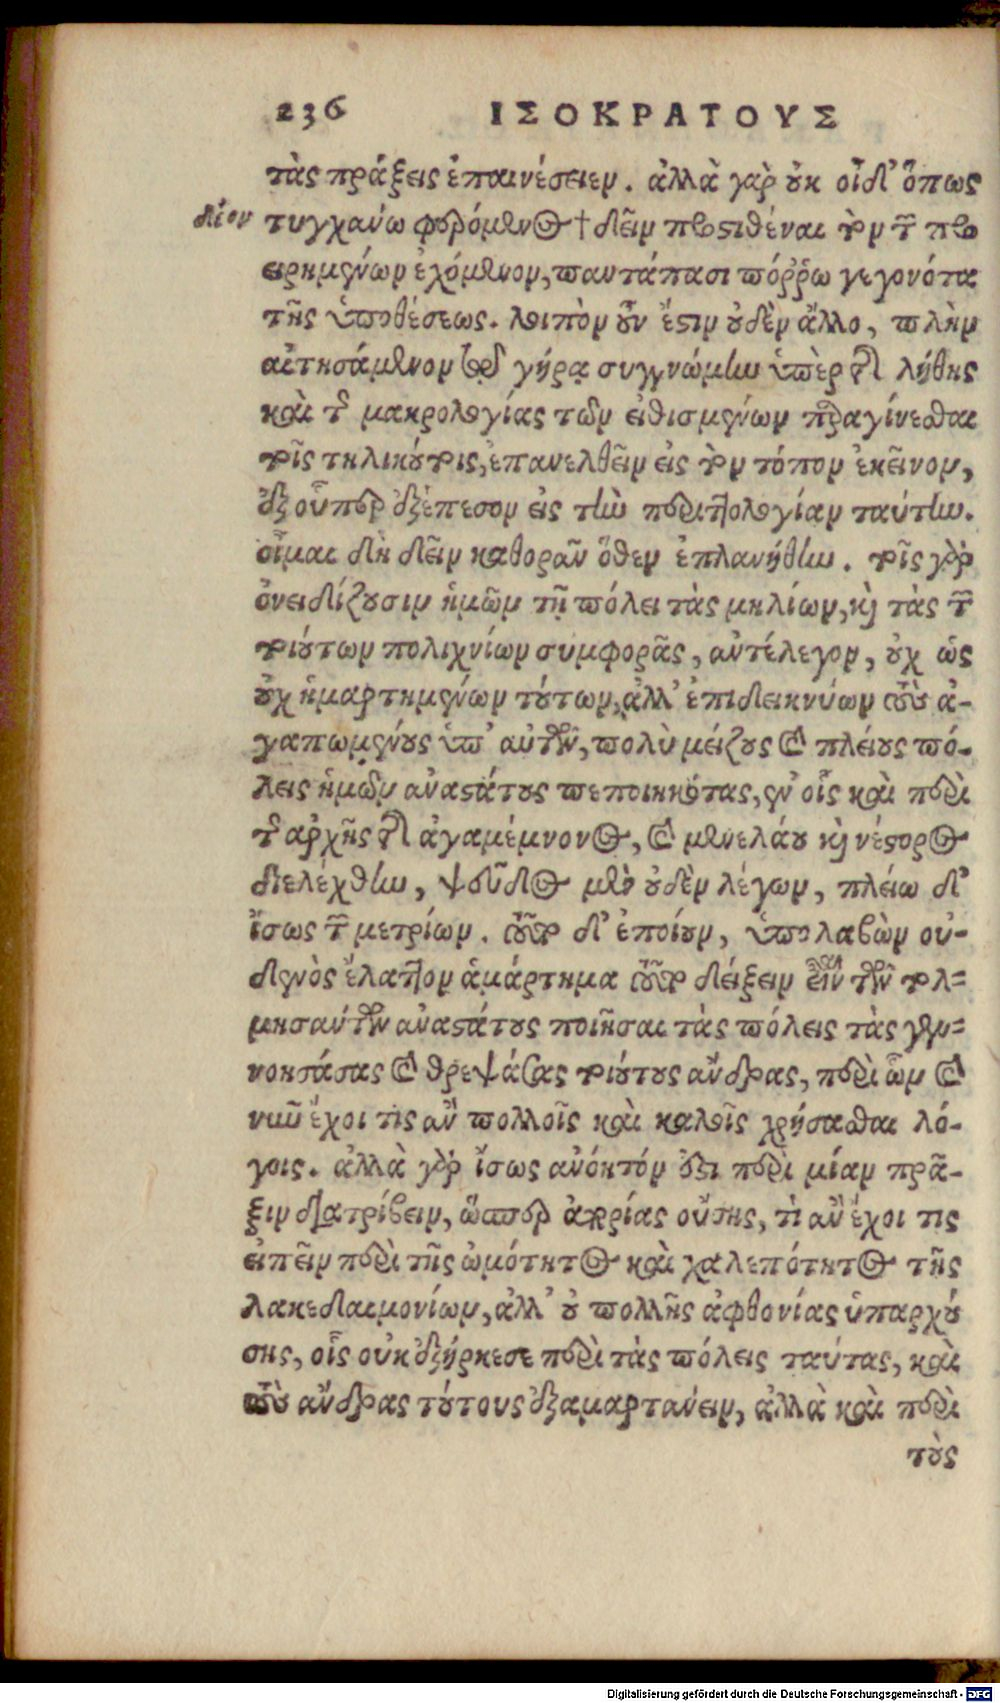 236 ΙΣΟΚΡΑΤΟΥΣ
τὰς πράξεις ἐπαινέσειεν. ἀλλὰ γὰρ οὐκ οἶδ' ὅπως
δέον
τυγχάνω φερόμενος † δεῖν προςιθέναι τὸν τῶν προ
ειρημένων ἐχόμενον, παντάπασι πόῤῥω γεγονότα
τῆς ὑποθέσεως. λοιπὸν οὖν ἔστιν οὐδὲν ἄλλο, πλὴν
αἰτησάμενον τῷ γήρᾳ συγγνώμην ὑπὲρ τῆς λήθης
καὶ τῆς μακρολογίας τῶν εἰθισμένων παραγίνεσθαι
τοῖς τηλικούτοις, ἐπανελθεῖν εἰς τὸν τόπον ἐκεῖνον,
ἐξ οὗπερ ἐξέπεσον εἰς τὴν περιττολογίαν ταύτην.
οἶμαι δὴ δεῖν καθορᾶν ὅθεν ἐπλανήθην. τοῖς γὰρ
ὀνειδίζουσιν ἡμῶν τῇ πόλει τὰς μηλίων, καὶ τὰς τῶν
τοιούτων πολιχνίων συμφορᾶς, ἀντέλεγον, οὐχ ὡς
οὐχ ἡμαρτημένων τούτων, ἀλλ' ἐπιδεικνύων τοὺς ἀ-
γαπωμένους ὑπ' αὐτῶν, πολὺ μείζους καὶ πλείους πό-
λεις ἡμῶν ἀναστάτους πεποιηκότας, ἐν οἷς καὶ περὶ
τῆς ἀρχῆς τῆς ἀγαμέμνονος, καὶ μενελάου καὶ νέστορος
διελέχθην, ψεῦδος μὲν οὐδὲν λέγων, πλείω δ'
ἴσως τῶν μετρίων. τοῦτο δ' ἐποίουν, ὑπολαβὼν οὐ-
δενὸς ἔλαττον ἁμάρτημα τοῦτο δείξειν εἶναι τῶν τολ-
μησάντων ἀναστάτους ποιῆσαι τὰς πόλεις τὰς γεν-
νοησάσας καὶ θρεψάσας τοιούτους ἄνδρας, περὶ ὧν καὶ
νῦν ἔχοι τις ἂν πολλοῖς καὶ καλοῖς χρήσασθαι λό-
γοις. ἀλλὰ γὰρ ἴσως ἀνόητόν ἐστι περὶ μίαν πρᾶ-
ξιν διατρίβειν, ὥσπερ ἀπορίας οὔσης, τί ἂν ἔχοι τις
εἰπεῖν περὶ τῆς ὠμότητος καὶ χαλεπότητος τῆς
λακεδαιμονίων, ἀλλ' οὐ πολλῆς ἀφθονίας ὑπαρχού
σης, οἷς οὐκ ἐξήρκεσε περὶ τὰς πόλεις ταύτας, καὶ
τοὺς ἄνδρας τούτους ἐξαμαρτάνειν, ἀλλὰ καὶ περὶ
τοὺς
Digitalisierung gefördert durch die Deutsche Forschungsgemeinschaft - DFG